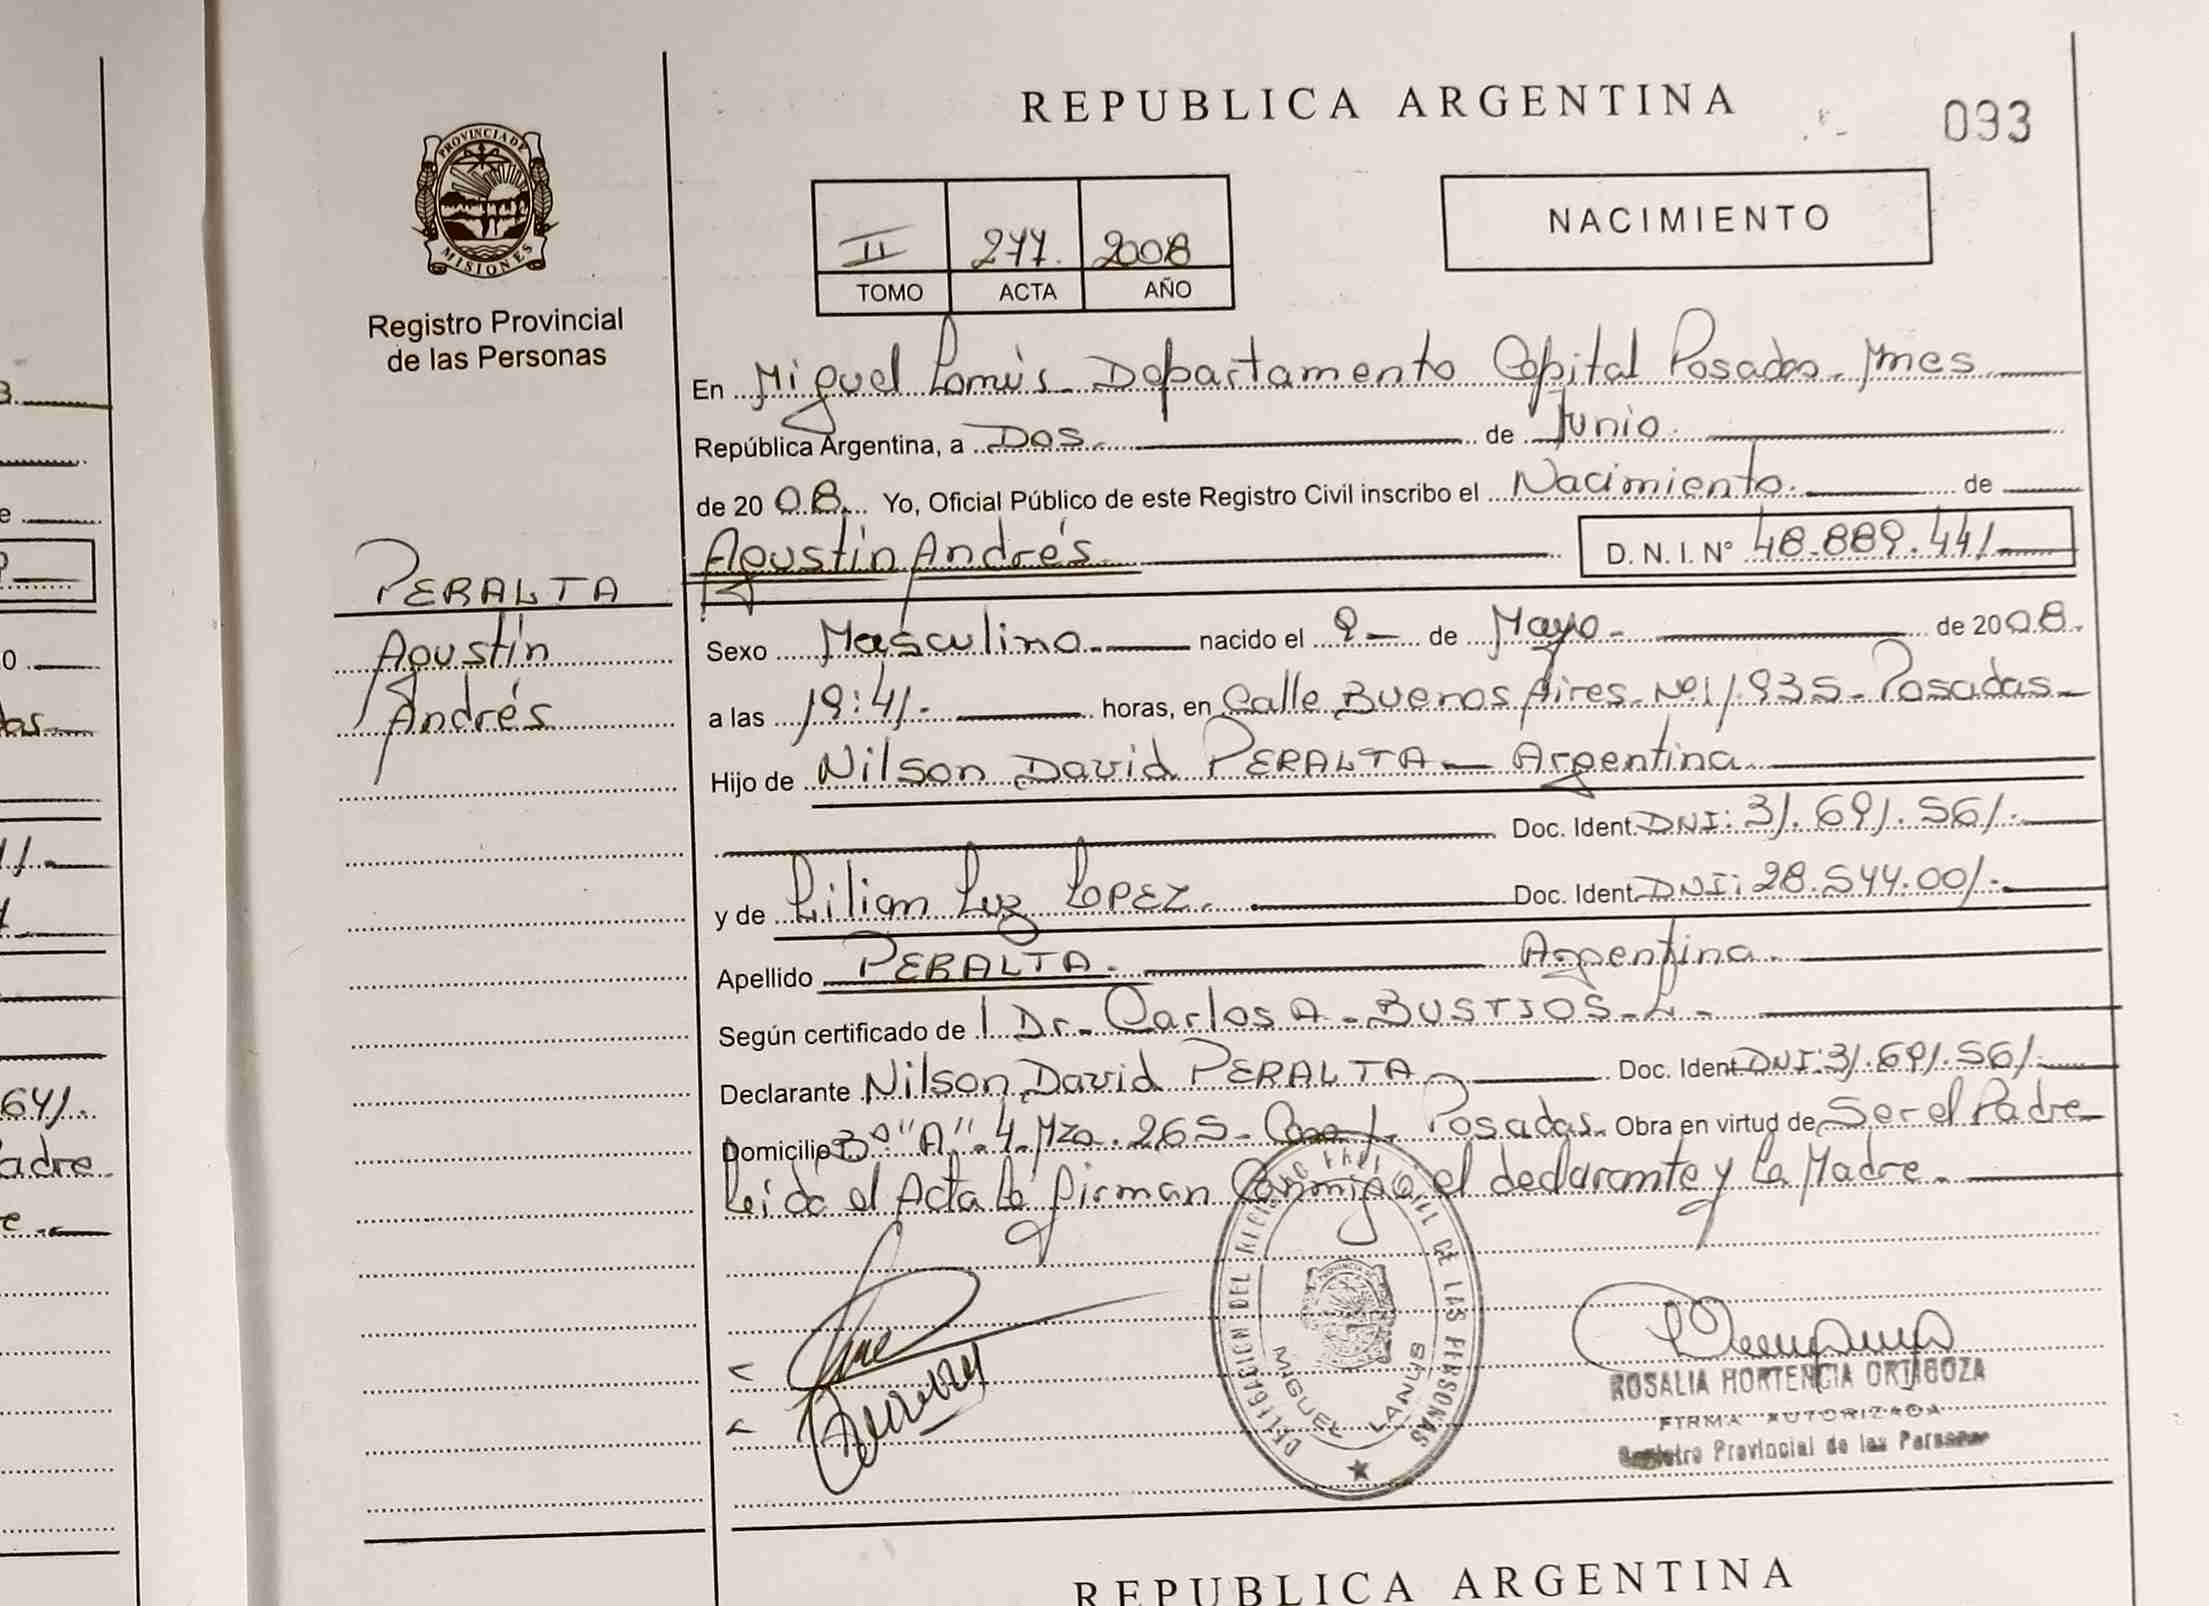 REPUBLICA ARGENTINA
093
PROVINCIA DE
MISIONES
Registro Provincial
de las Personas
II 277. 2008
TOMO ACTA AÑO
NACIMIENTO
En Miguel Lanús Departamento Capital Posadas Mnes
República Argentina, a Dos. de Junio.
de 2008. Yo, Oficial Público de este Registro Civil inscribo el Nacimiento. de
Agustín Andrés D. N. I. N° 48.889.441
PERALTA
Agustín
Andrés
Sexo Masculino nacido el 9 de Mayo de 2008.
a las 19:41. horas, en Calle Buenos Aires Nº 1935 Posadas
Hijo de Nilson David PERALTA Argentina
Doc. Ident. DNI: 31.691.561.
y de Lilian Luz LOPEZ. Doc. Ident. DNI: 28.544.001.
Apellido PERALTA. Argentina.
Según certificado de Dr. Carlos A. BUSTIOS L.
Declarante Nilson David PERALTA Doc. Ident DNI: 31.691.561.
Domicilio Bº "A" 4 Mza. 265 Posadas. Obra en virtud de Ser el Padre
Leída el Acta la firman Conmigo el declarante y la Madre.
DELEGACION DEL REGISTRO PROVINCIAL DE LAS PERSONAS
MIGUEL LANUS
ROSALIA HORTENCIA ORTIGOZA
FIRMA AUTORIZADA
Registro Provincial de las Personas
REPUBLICA ARGENTINA